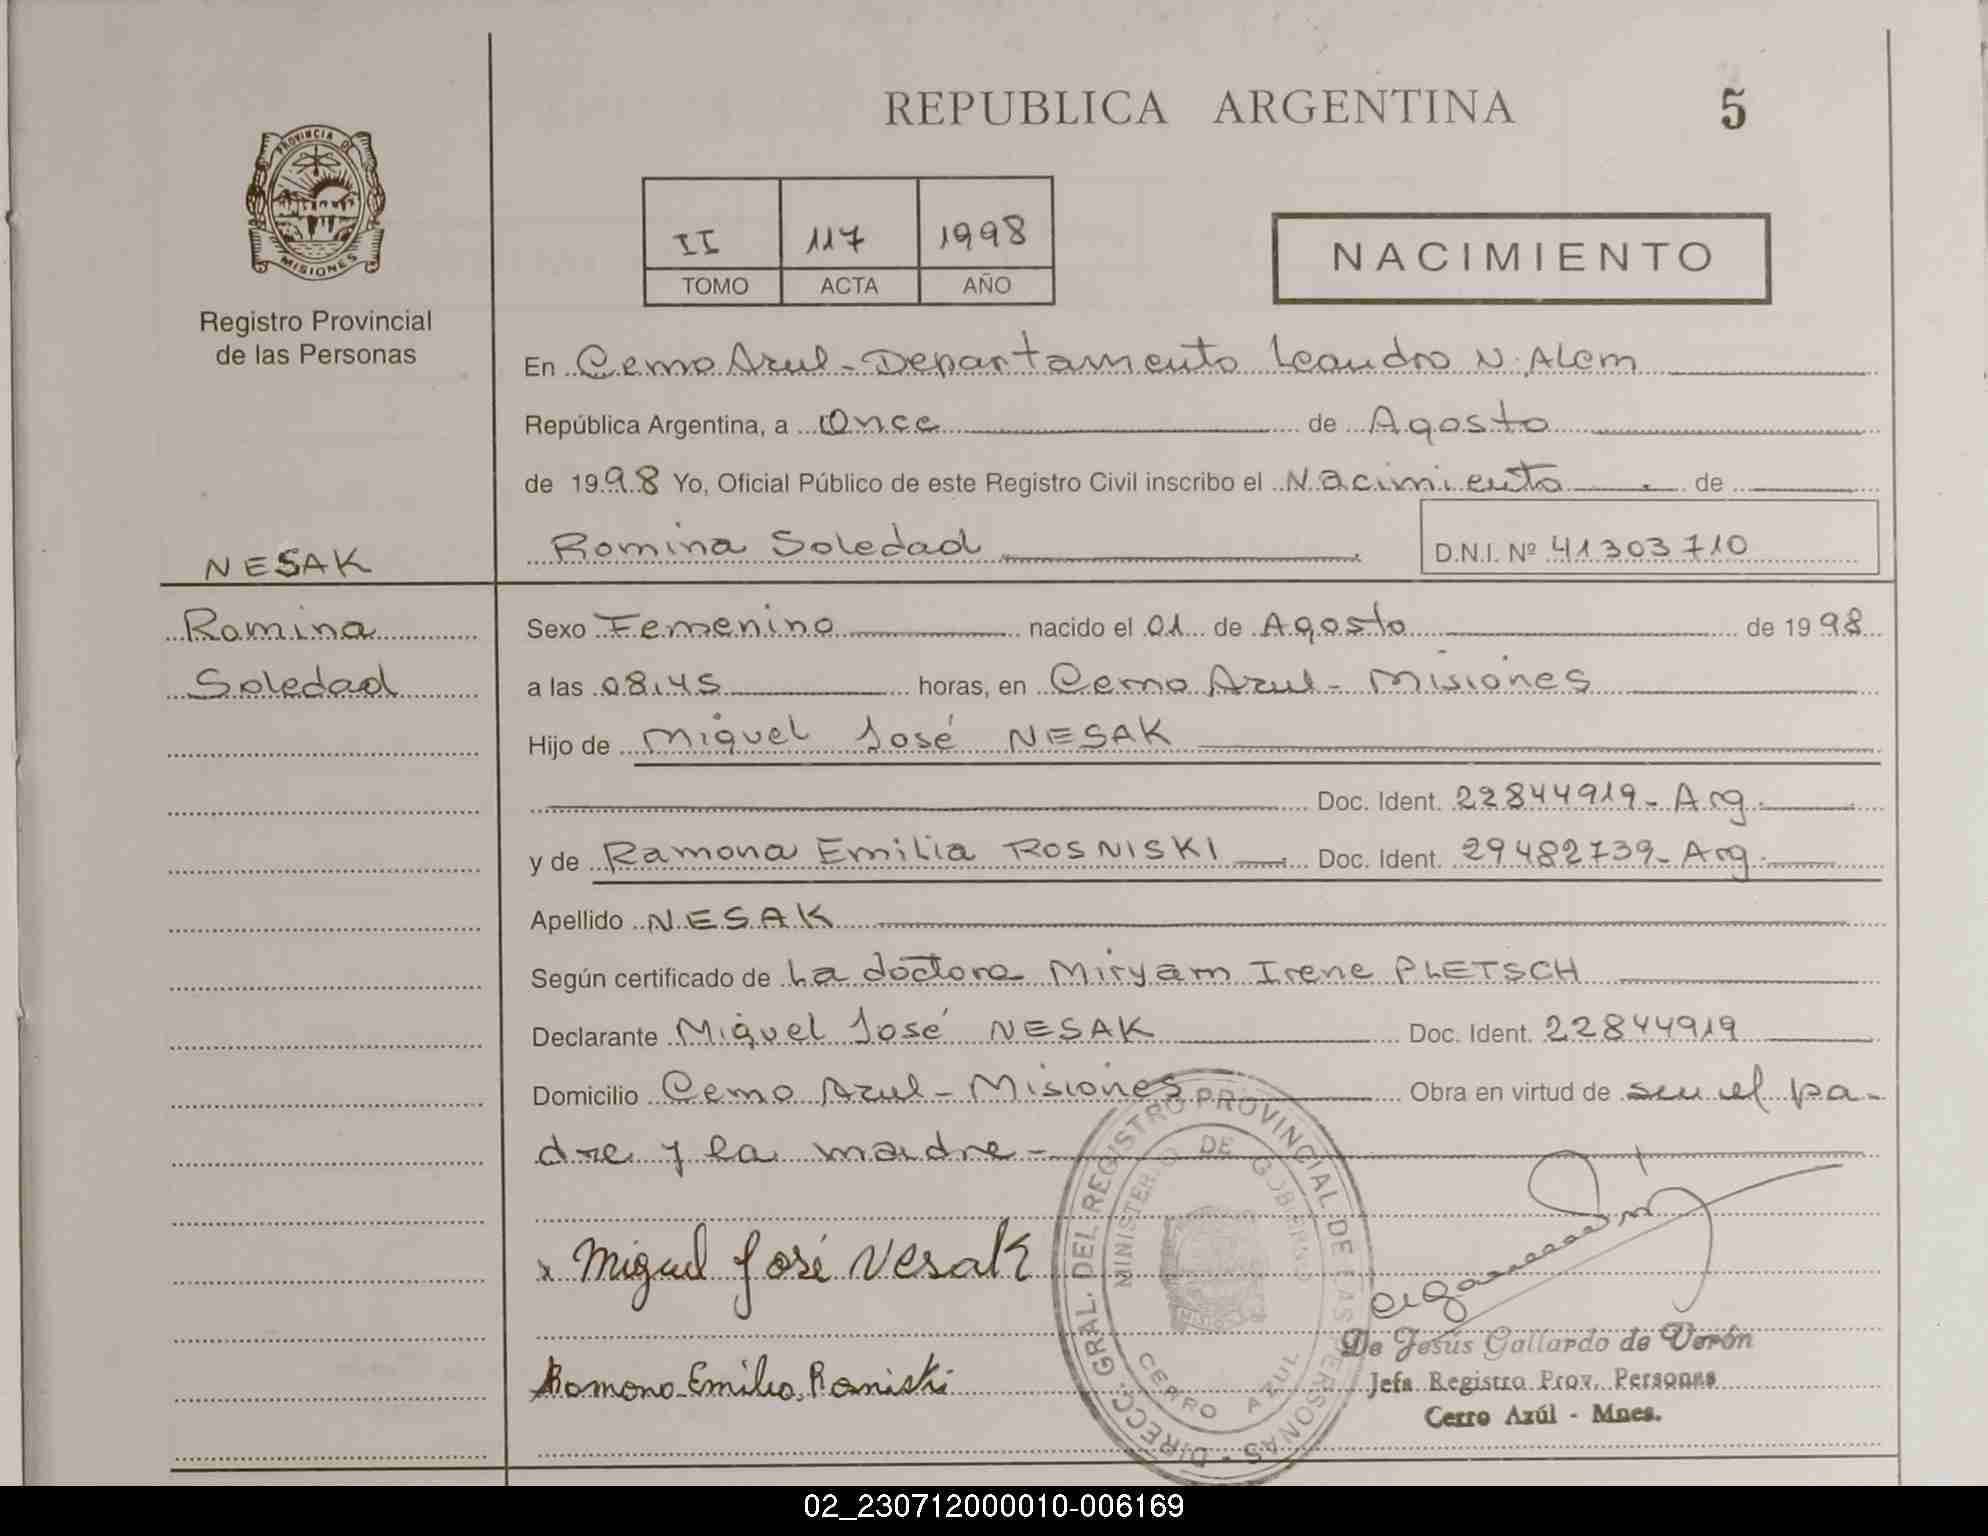 REPUBLICA ARGENTINA
5
PROVINCIA DE
MISIONES
Registro Provincial
de las Personas
II 117 1998
TOMO ACTA AÑO
NACIMIENTO
En Cerro Azul - Departamento Leandro N. Alem
República Argentina, a Once de Agosto
de 1998 Yo, Oficial Público de este Registro Civil inscribo el Nacimiento de
Romina Soledad
D.N.I. Nº 41303710
NESAK
Romina
Soledad
Sexo Femenino nacido el 01 de Agosto de 1998
a las 08.45 horas, en Cerro Azul - Misiones
Hijo de Miguel José NESAK
Doc. Ident. 22844919 - Arg.
y de Ramona Emilia ROSNISKI Doc. Ident. 29482739 - Arg.
Apellido NESAK
Según certificado de La doctora Miryam Irene PLETSCH
Declarante Miguel José NESAK Doc. Ident. 22844919
Domicilio Cerro Azul - Misiones Obra en virtud de ser el pa-
dre y la madre -
x Miguel José Nesak
Ramona Emilia Rosniski
DIRECC. GRAL. DEL REGISTRO PROVINCIAL DE LAS PERSONAS -
MINISTERIO DE GOBIERNO
MISIONES
CERRO AZUL
De Jesús Gallardo de Verón
Jefa Registro Prov. Personas
Cerro Azúl - Mnes.
02_230712000010-006169